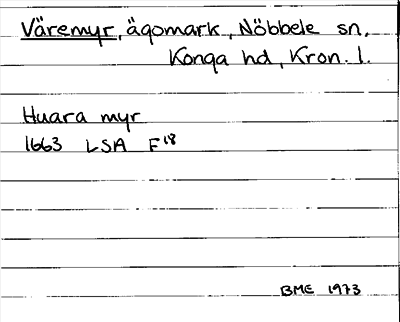 Väremyr, ägomark, Nöbbele sn,
Konga hd, Kron. l.
Huara myr
1663 LSA F18
BME 1973